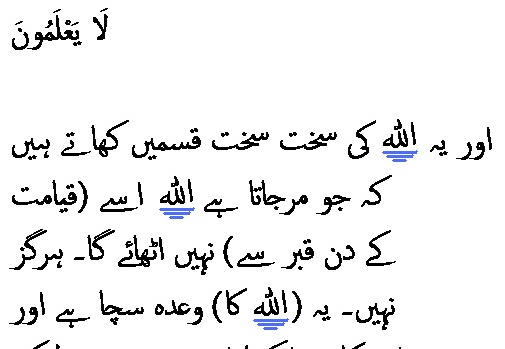 لَا يَعْلَمُونَ
اور یہ اللہ کی سخت سخت قسمیں کھاتے ہیں
کہ جو مرجاتا ہے اللہ اسے (قیامت
کے دن قبر سے) نہیں اٹھائے گا۔ ہرگز
نہیں۔ یہ (اللہ کا) وعدہ سچا ہے اور